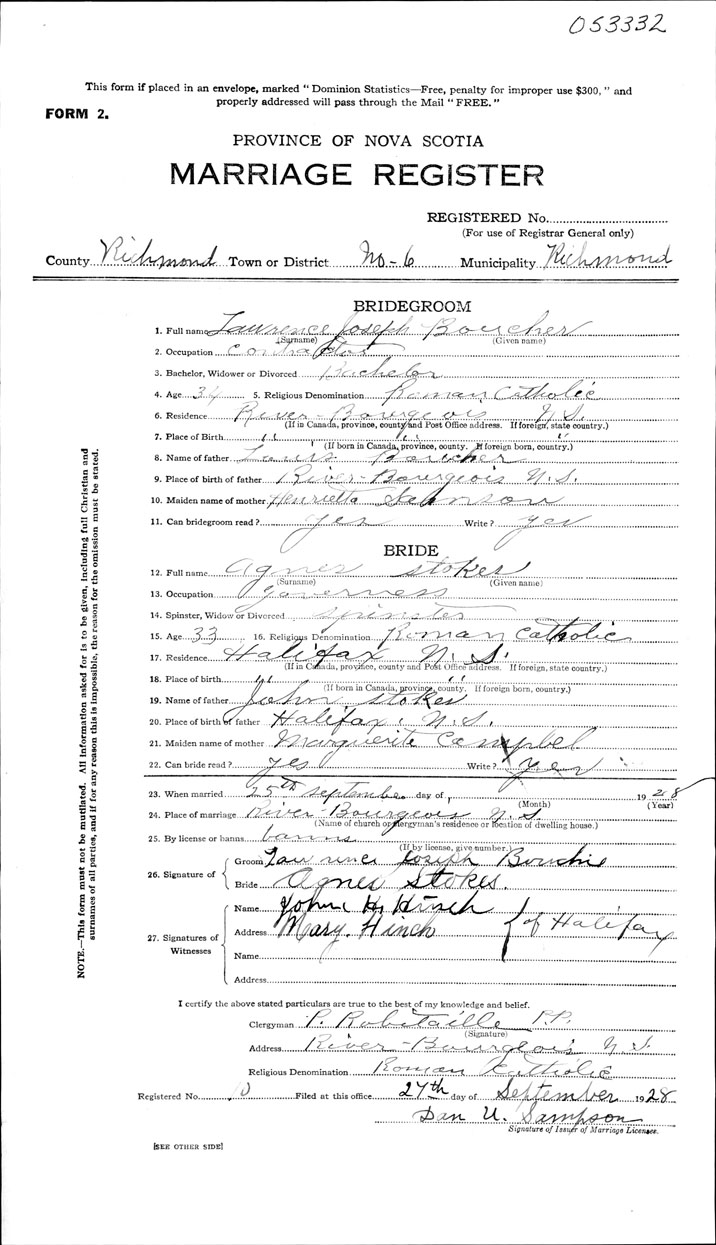 053332
This form if placed in an envelope, marked " Dominion Statistics—Free, penalty for improper use $300, " and
properly addressed will pass through the Mail " FREE. "
FORM 2.
PROVINCE OF NOVA SCOTIA
MARRIAGE REGISTER
REGISTERED No.
(For use of Registrar General only)
County Richmond Town or District No-6 Municipality Richmond
BRIDEGROOM
1. Full name Lawrence Joseph Boucher
(Surname) (Given name)
2. Occupation contractor
3. Bachelor, Widower or Divorced Bachelor
4. Age 34 5. Religious Denomination Roman Catholic
6. Residence River-Bourgeois N.S.
(If in Canada, province, county and Post Office address. If foreign, state country.)
7. Place of Birth " " "
(If born in Canada, province, county. If foreign born, country.)
8. Name of father Louis Boucher
9. Place of birth of father River-Bourgeois N.S.
10. Maiden name of mother Henrietta
11. Can bridegroom read? yes Write? yes
BRIDE
12. Full name Agnes Stokes
(Surname) (Given name)
13. Occupation Governess
14. Spinster, Widow or Divorced spinster
15. Age 33 16. Religious Denomination Roman Catholic
17. Residence Halifax N.S.
(If in Canada, province, county and Post Office address. If foreign, state country.)
18. Place of birth " "
(If born in Canada, province, county. If foreign born, country.)
19. Name of father John Stokes
20. Place of birth of father Halifax, N.S.
21. Maiden name of mother Marguerite Campbel
22. Can bride read? yes Write? yes
23. When married 25th September day of 1928
(Month) (Year)
24. Place of marriage River Bourgeois N.S.
(Name of church or clergyman's residence or location of dwelling house.)
25. By license or banns banns
(If by license, give number.)
26. Signature of
Groom Lawrence Joseph Bouchie
Bride Agnes Stokes.
27. Signatures of Witnesses
Name John H. Hinch
Address Mary. Hinch of Halifax
Name
Address
I certify the above stated particulars are true to the best of my knowledge and belief.
Clergyman P. Robitaille P.P.
(Signature)
Address River-Bourgeois N.S.
Religious Denomination Roman Catholic
Registered No. 10 Filed at this office 27th day of September 1928
Dan U. Sampson
Signature of Issuer of Marriage Licenses.
[SEE OTHER SIDE]
NOTE.—This form must not be mutilated. All information asked for is to be given, including full Christian and
surnames of all parties, and if for any reason this is impossible, the reason for the omission must be stated.